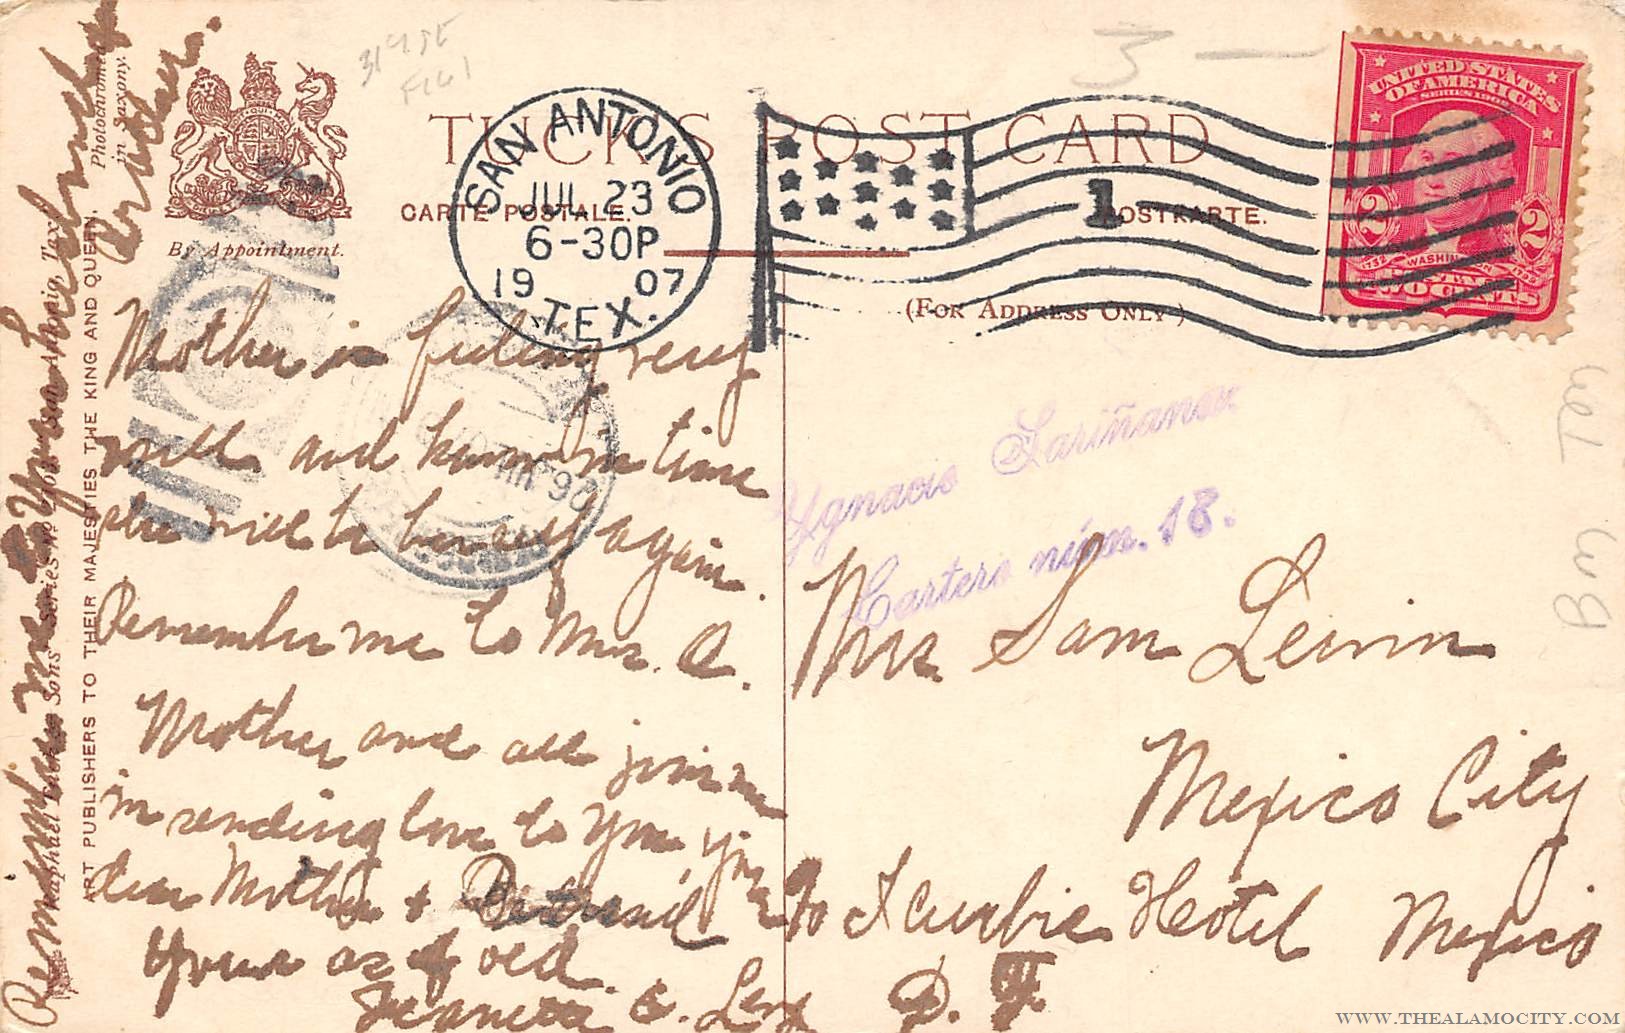 TUCK'S POST CARD
CARTE POSTALE. POSTKARTE.
(For Address Only)
By Appointment.
Photochromed
in Saxony.
SAN ANTONIO
JUL 23
6-30P
1907
TEX.
1
UNITED STATES
OF AMERICA
SERIES 1902
2 2
1732 WASHINGTON 1799
TWO CENTS
3 —
Ygnacio Lariñanar
Cartero núm. 18.
26 JUL
Mother is feeling very
well and know in time
she will be herself again.
Remember me to Mrs. A.
Mother and all join me
in sending love to you, your
dear Mother &
Yours as of old.
E. Levy
Remember me to Your husband
Brother.
Mrs Sam Lewin
Mexico City
Hotel Mexico
D. F.
Raphael Tuck & Sons' Series
San Antonio, Tex.
ART PUBLISHERS TO THEIR MAJESTIES THE KING AND QUEEN.
WWW.THEALAMOCITY.COM